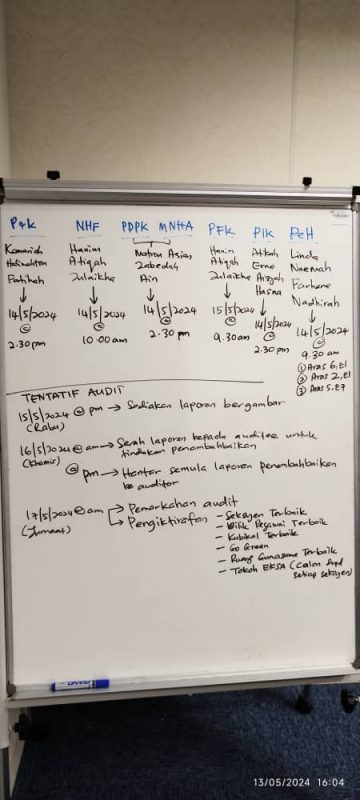 P&K
Komariah
Fatihah
14/5/2024
@
2.30pm
NHF
Hanim
Atiqah
Zulaikha
14/5/2024
@
10.00am
PDPK MNHA
Matron Asian
Zabedah
Ain
14/5/2024
@
2.30pm
PFK
Hanim
Atiqah
Zulaikha
15/5/2024
@
9.30am
PIK
Atikah
Erna
Aisyah
Hasna
14/5/2024
@
2.30pm
PeH
Linda
Naemah
Farhana
Nadhirah
14/5/2024
@
9.30am
① Aras 6, E1
② Aras 2, E1
③ Aras 5, E7
TENTATIF AUDIT
15/5/2024 @ pm → Sediakan laporan bergambar
(Rabu)
16/5/2024 @ am → Serah laporan kepada auditee untuk
(Khamis) tindakan penambahbaikan
@ pm → Hantar semula laporan penambahbaikan
ke auditor
17/5/2024 @ am → Pemarkahan audit
(Jumaat) → Pengiktirafan
- Seksyen Terbaik
- Bilik Pegawai Terbaik
- Kubikal Terbaik
- Go Green
- Ruang Gunasama Terbaik
- Tokoh EKSA (Calon drpd
setiap seksyen)
13/05/2024 16:04